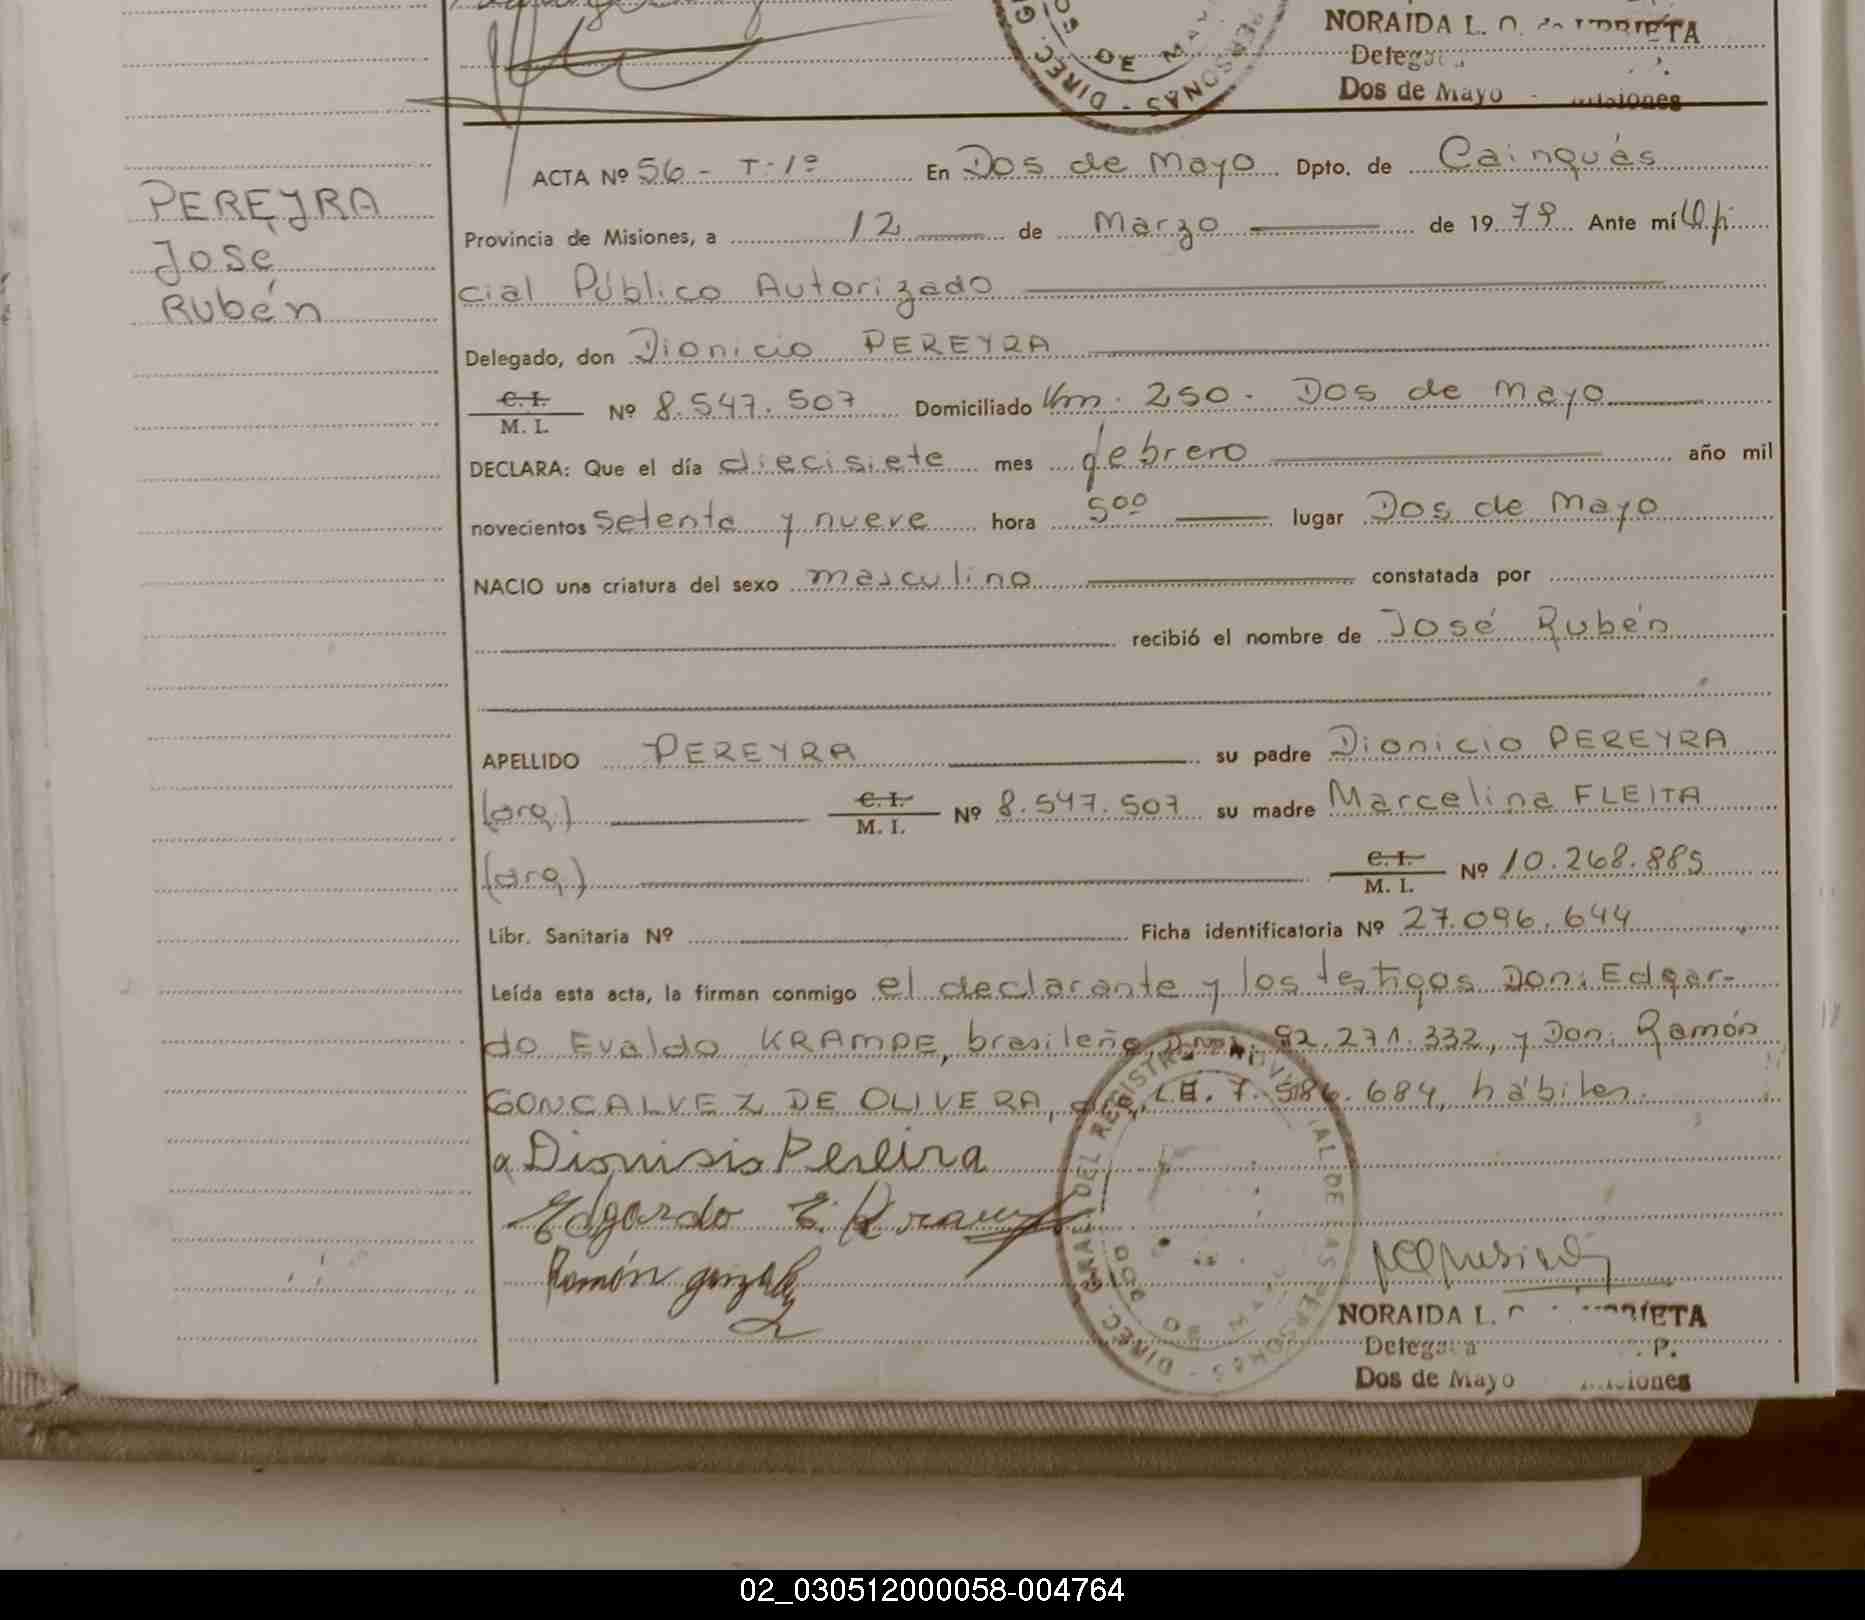 NORAIDA L. O. de URRIETA
Delegada
Dos de Mayo - Misiones
PERSONAS - DIREC. G
DE MAY
PEREYRA
José
Rubén
ACTA Nº 56 - T: 1º En Dos de Mayo Dpto. de Cainguás
Provincia de Misiones, a 12 de Marzo de 1979. Ante mí Ofi
cial Público Autorizado
Delegado, don Dionicio PEREYRA
C. I.
M. I. Nº 8.547.507 Domiciliado Km. 250. Dos de Mayo
DECLARA: Que el día diecisiete mes febrero año mil
novecientos setenta y nueve hora 5⁰⁰ lugar Dos de Mayo
NACIO una criatura del sexo masculino constatada por
recibió el nombre de José Rubén
APELLIDO PEREYRA su padre Dionicio PEREYRA
(arg.) C. I. M. I. Nº 8.547.507 su madre Marcelina FLEITA
(arg.) C. I. M. I. Nº 10.268.885
Libr. Sanitaria Nº Ficha identificatoria Nº 27.096.644
Leída esta acta, la firman conmigo el declarante y los testigos Don: Edgar-
do Evaldo KRAMPE, brasileño, D.N.I. 92.271.332, y Don: Ramón
GONCALVEZ DE OLIVERA, arg. L.E. 7.586.684, hábiles.
Dionisio Pereira
Edgardo E. Krampe
Ramón
DIREC. GRAL. DEL REGISTRO PROVINCIAL DE LAS PERSONAS
NORAIDA L. O. de URRIETA
Delegada R. P.
Dos de Mayo - Misiones
02_030512000058-004764